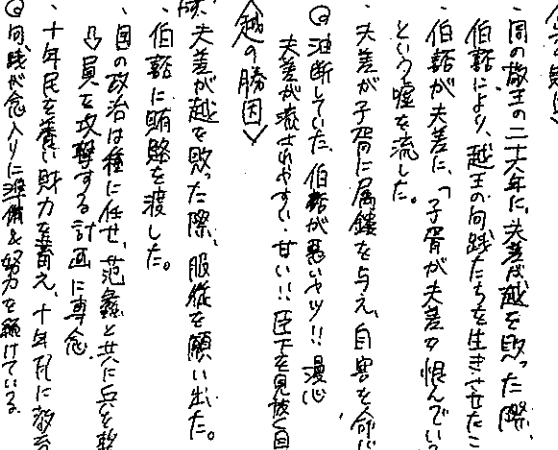 ・周の敬王の二十六年に、夫差は越を敗った際、
伯嚭により、越王の句践たちを生きさせたこ
・伯嚭が夫差に、「子胥が夫差を恨んでい
という嘘を流した。
・夫差が子胥に属鏤を与え、自害を命じ
◎油断していた、伯嚭が悪いヤツ!!慢心
夫差が流されやすい・甘い!!臣下を見抜く目
〈越の勝因〉
夫差が越を敗った際、服従を願い出た。
・伯嚭に賄賂を渡した。
・国の政治は種に任せ、范蠡と共に兵を
⇩呉を攻撃する計画に専念
・十年民を養い財力を蓄え、十年
◎句践が念入りに準備&努力を続けている。